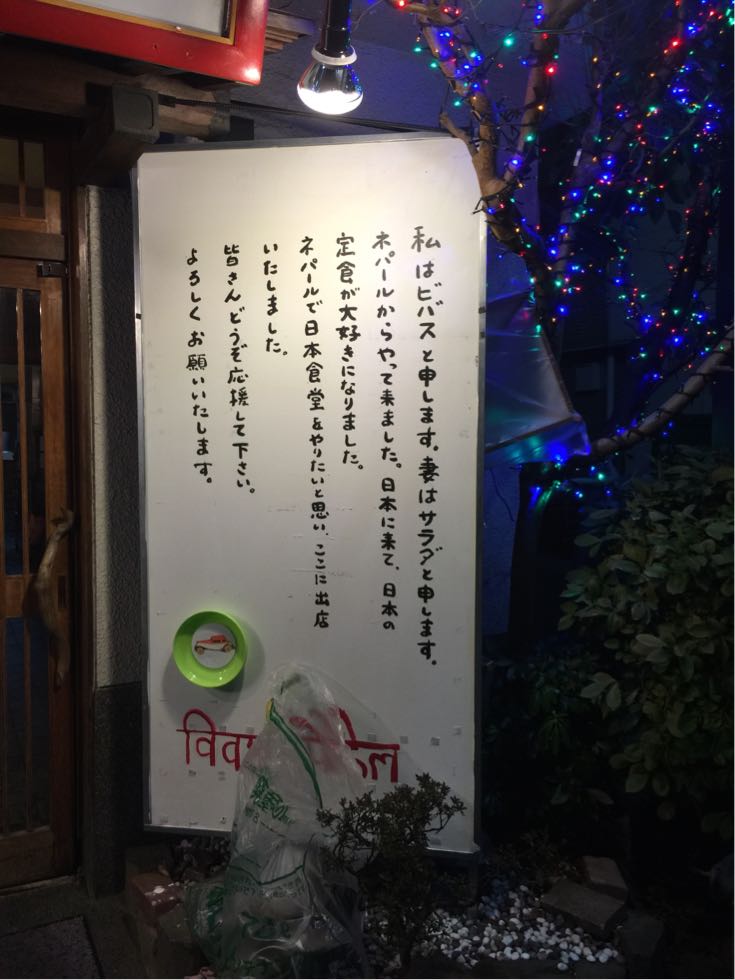 私はビバスと申します。妻はサラダと申します。
ネパールからやって来ました。日本に来て、日本の
定食が大好きになりました。
ネパールで日本食堂をやりたいと思い、ここに出店
いたしました。
皆さんどうぞ応援して下さい。
よろしくお願いいたします。